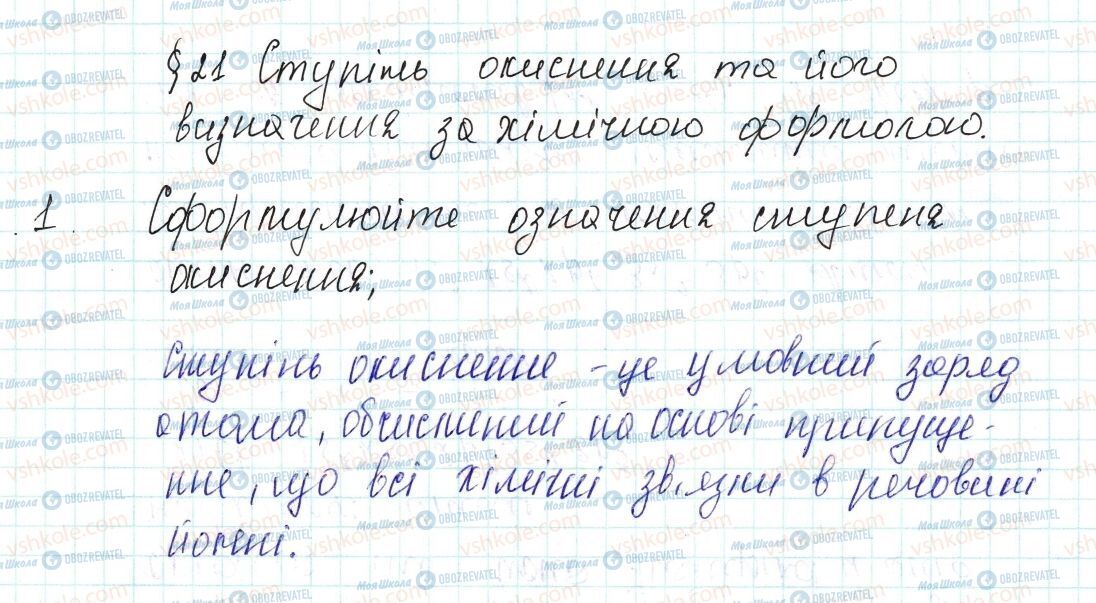 § 21 Ступінь окиснення та його
визначення за хімічною формолою.
1. Сформулюйте означення ступеня
окиснення;
Ступінь окисненне - це умовний заряд
атома, обчислений на основі припуще-
нне, що всі хімічні зв'язки в речовині
йонні.